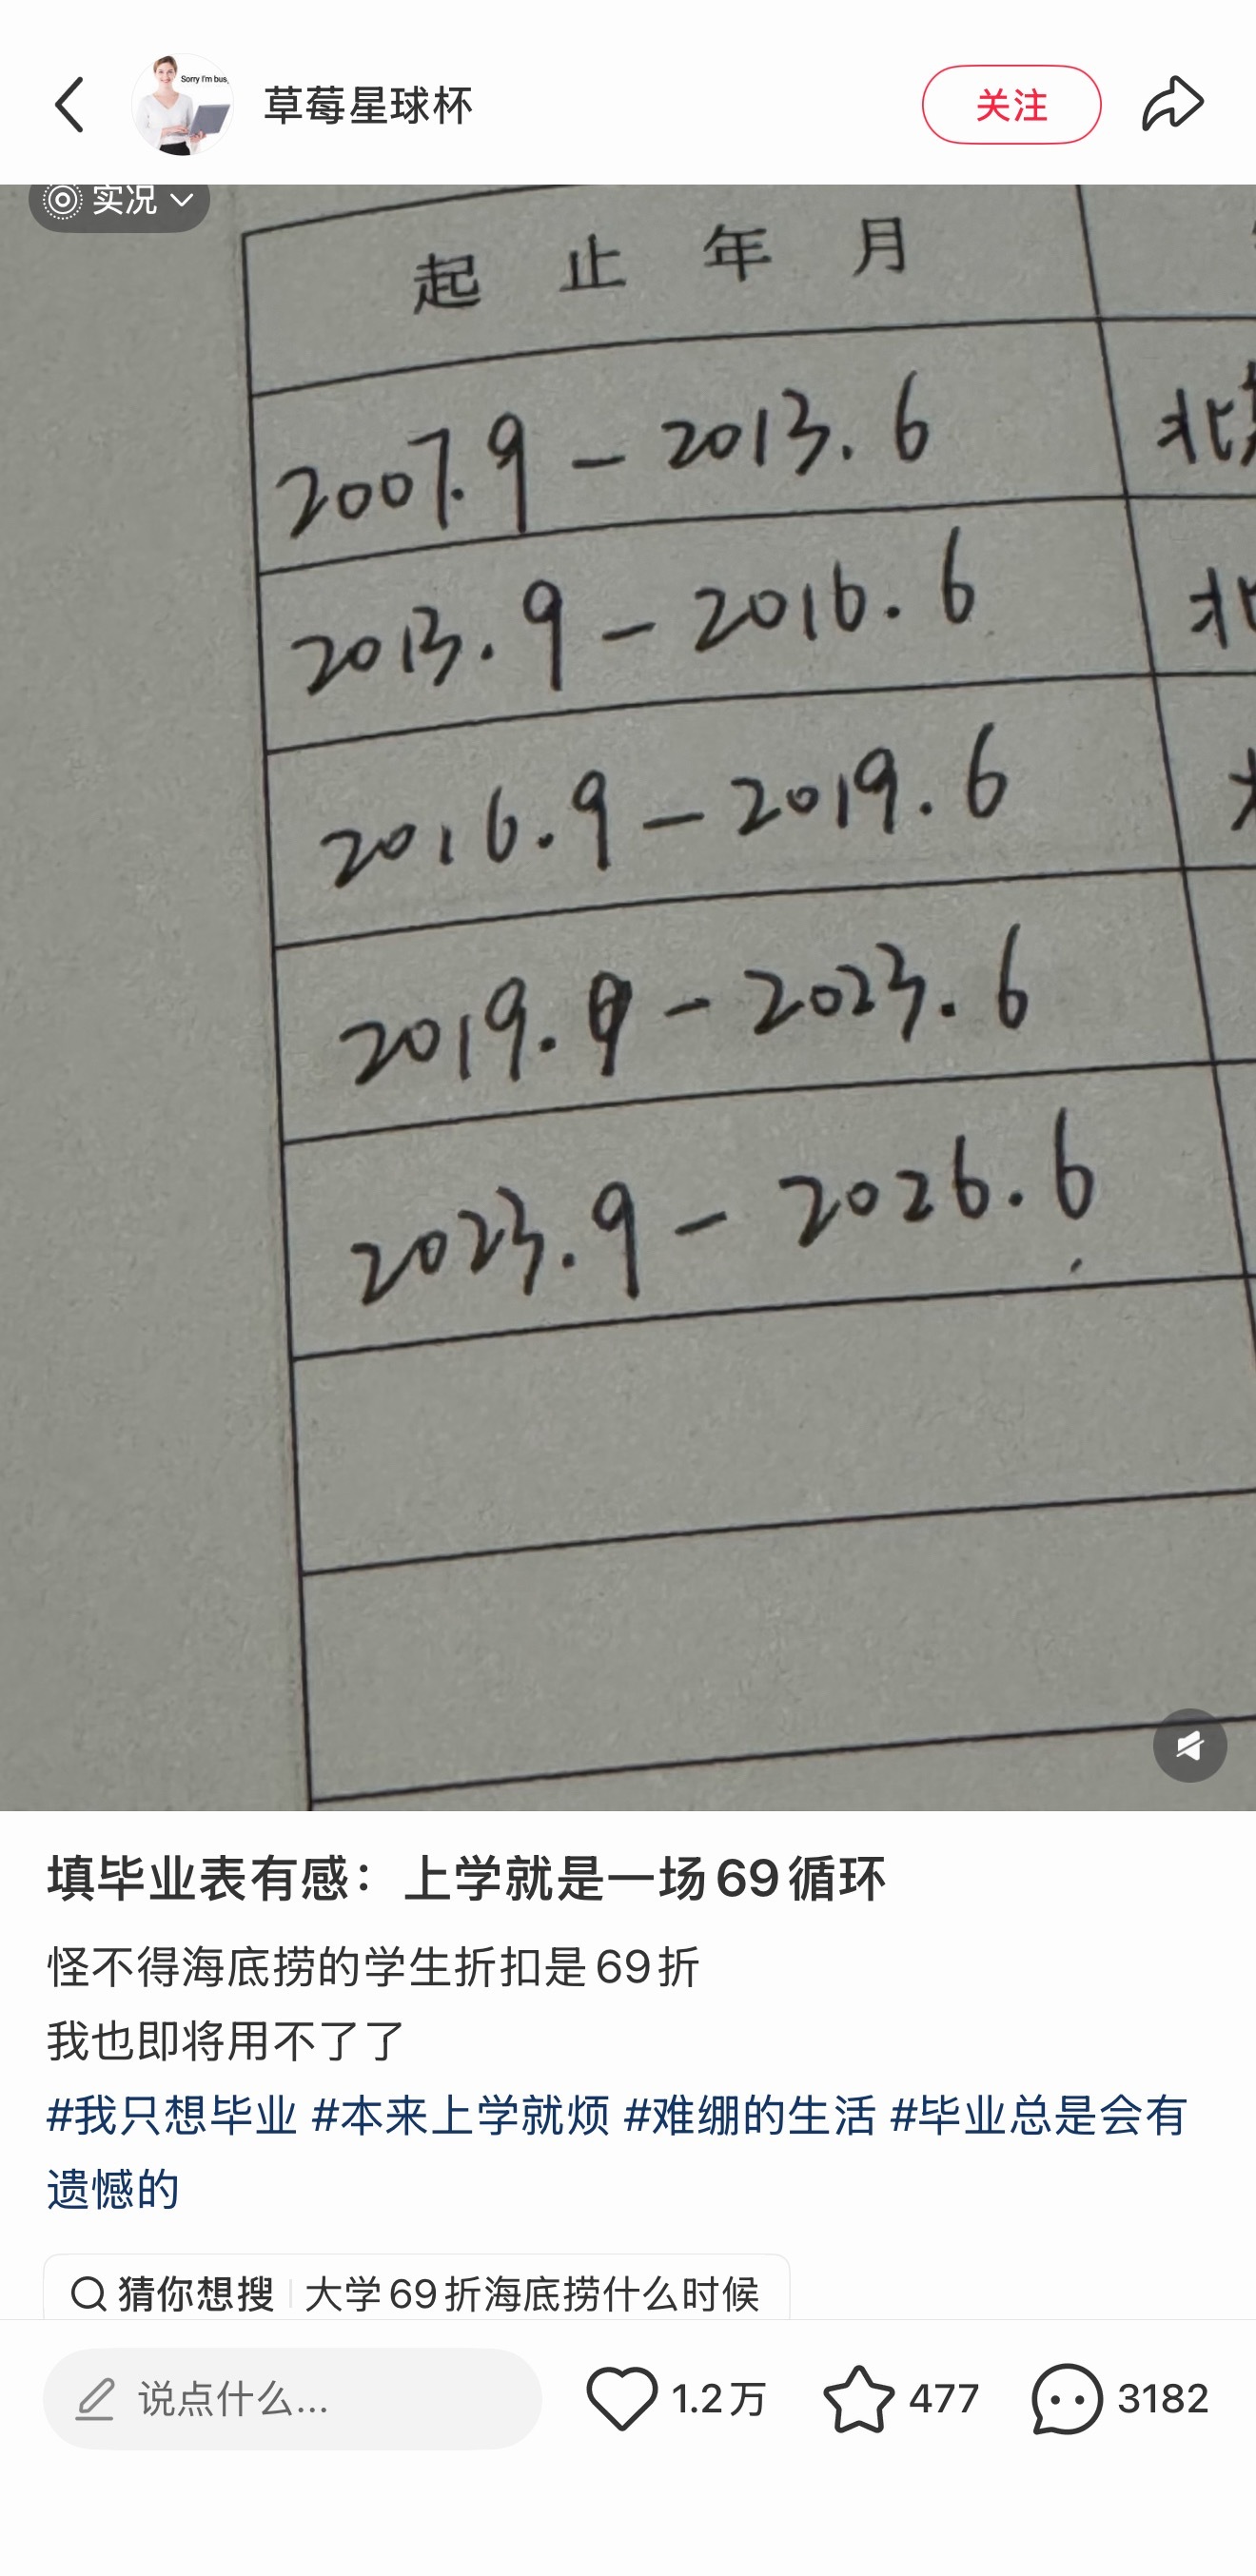 Sorry I'm bus
草莓星球杯
关注
实况
起 止 年 月
2007.9 - 2013.6
2013.9 - 2016.6
2016.9 - 2019.6
2019.9 - 2023.6
2023.9 - 2026.6
填毕业表有感：上学就是一场69循环
怪不得海底捞的学生折扣是69折
我也即将用不了了
#我只想毕业 #本来上学就烦 #难绷的生活 #毕业总是会有
遗憾的
猜你想搜 大学69折海底捞什么时候
说点什么...
1.2万
477
3182